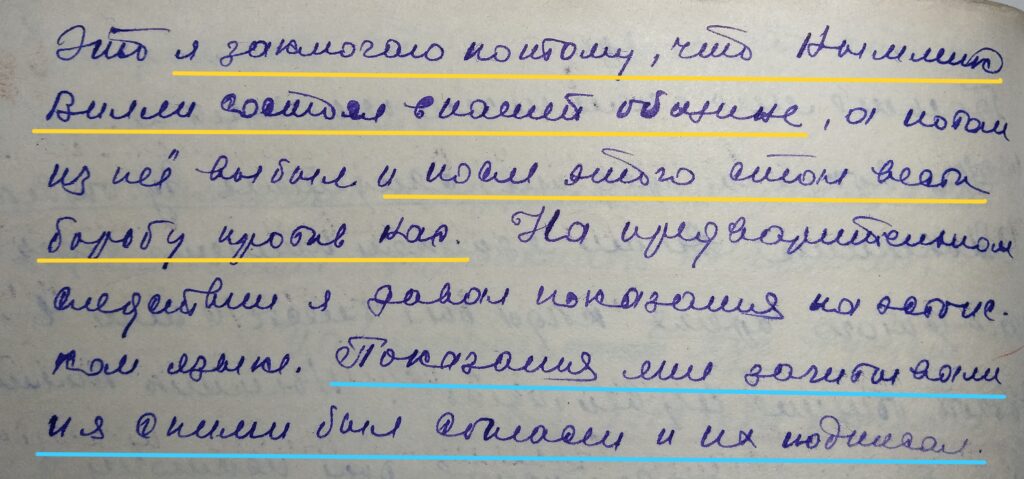 Это я заключаю потому, что Кыммик
Вилли состоял в нашей общине, а потом
из неё выбыл и после этого стал вести
борьбу против нас. На предварительном
следствии я давал показания на эстонс-
ком языке. Показания мне зачитывали
и я с ними был согласен и их подписал.